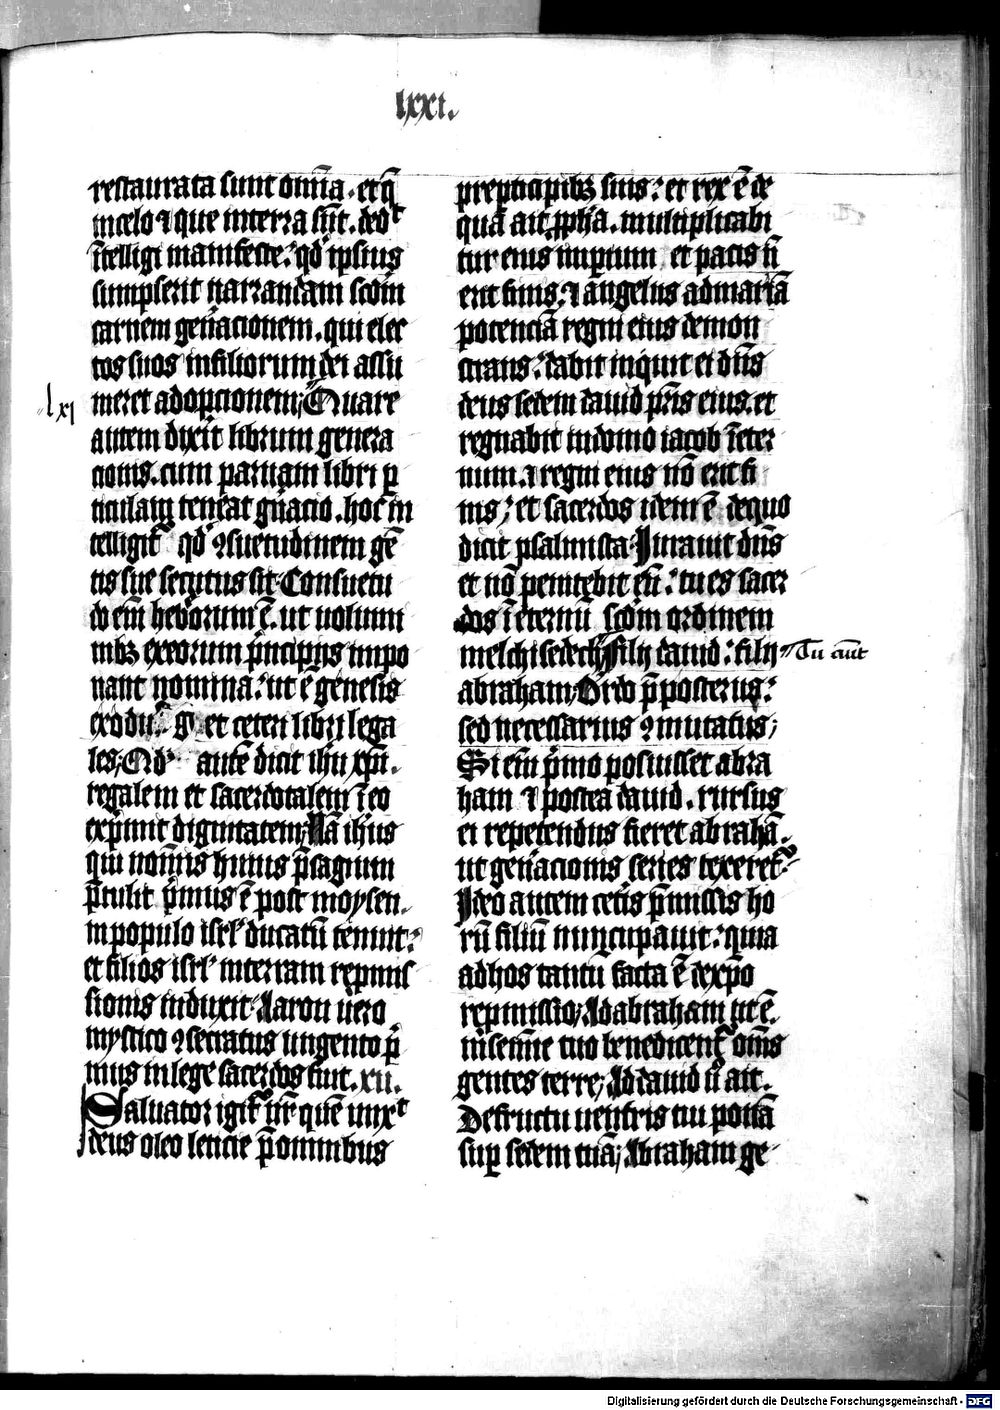 lxxi.
restaurata sunt om̄ia. et q̄
in celo ⁊ que in terra sūt. deđt
ītelligi manifeste: qđ ipsius
sumpserit narrandam scđm
carnem geñacionem. qui elec
tos suos in filiorum dei assu
lxi
meret adopcionem; Quare
autem dixit librum genera
cionis. cum paruam libri p̄
ticulam teneat gñacio. hoc in
telligit̄ qđ ꝯsuetudinem gē
tis sue secutus sit. Consuetu
do em̄ hebꝛorum ē. ut uolumi
nibꝫ ex eorum pꝛincipijs impo
nant nomina: ut ē genesis
exodus et ceteri libri lega
les; Qđ autē dicit ihū xp̄i.
regalem et sacerdotalem ī eo
exp̄mit dignitatem; Nā ih̄us
qui noīnis huius p̄sagium
p̄tulit p̄mus ē post moysen.
in populo isrł ducatū tenuit:
et filios isrł in terram repmis
sionis induxit. Aaron uero
mystico ꝯsecratus ungento p̄
mus in lege sacerdos fuit. xii.
Saluator igit̄ nr̄ quē unxt
deus oleo leticie p̄ omnibus
prepticipibꝫ suis: et rex ē de
quā ait ꝓph̄a. multiplicabi
tur eius impium et pacis n̄
erit finis. ⁊ angelus ad mariā
potenciā regni eius demon
strans: dabit inquit ei dn̄s
deus sedem dauid pr̄is eius. et
regnabit in domo iacob ī eter
num. ⁊ regni eius nō erit fi
nis; et sacerdos idem ē de quo
dicit psalmista. Iurauit dn̄s
et nō penitebit eū: tu es sacer
dos ī eternū scđm ordinem
melchisedech; filij dauid: filij
abraham; Ordo p̄posterus:
sed necessarius ꝯmutatus;
Si em̄ p̄mo posuisset abra
ham ⁊ postea dauid. rursus
ei repetendus fieret abrahā.
ut geñacionis series texeret̄
Ideo autem cetis p̄missis ho
rū filiū nuncupauit: quia
ad hos tantū facta ē de xp̄o
repmissio; Ad abraham ut ē.
in semīe tuo benedicent̄ om̄s
gentes terre; Ad dauid ū ait.
De fructu uentris tui ponā
suꝑ sedem tuā; Abraham ge
Digitalisierung gefördert durch die Deutsche Forschungsgemeinschaft - DFG